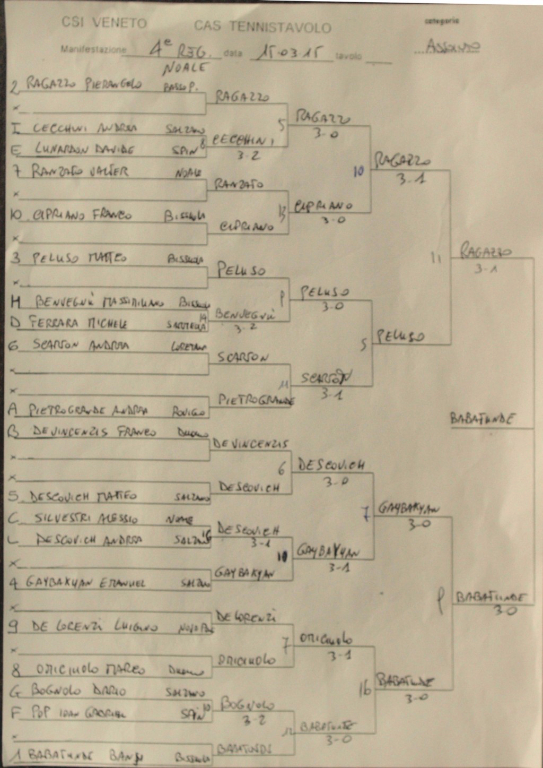 CSI VENETO CAS TENNISTAVOLO categoria
Manifestazione 4ª REG. data 15.03.15 tavolo ASSOLUTO
NOALE
2 RAGAZZO PIERANGELO
x
RAGAZZO
I CECCHINI ANDREA SALZANO
E LUNARDON DAVIDE SPIN
CECCHINI
3-2
5 RAGAZZO
3-0
7 RANZATO VALTER NOALE
x
RANZATO
10 CIPRIANO FRANCO BISSUOLA
x
CIPRIANO
13 CIPRIANO
3-0
10 RAGAZZO
3-1
3 PELUSO MATTEO BISSUOLA
x
PELUSO
H BENVEGNÙ MASSIMILIANO BISSUOLA
D FERRARA MICHELE
14 BENVEGNÙ
3-2
PELUSO
3-0
6 SCARTON ANDREA
x
SCARTON
x
A PIETROGRANDE ANDREA ROVIGO
PIETROGRANDE
11 SCARTON
3-1
5 PELUSO
11 RAGAZZO
3-1
B DEVINCENZIS FRANCO
x
DEVINCENZIS
x
5 DESCOVICH MATTEO SALZANO
DESCOVICH
6 DESCOVICH
3-0
C SILVESTRI ALESSIO NOALE
L DESCOVICH ANDREA SALZANO
16 DESCOVICH
3-1
x
4 GAYBAKYAN EMANUEL SALZANO
GAYBAKYAN
10 GAYBAKYAN
3-1
7 GAYBAKYAN
3-0
x
9 DE LORENZI LUIGINO
DE LORENZI
x
8 OMICIUOLO MARCO
OMICIUOLO
7 OMICIUOLO
3-1
G BOGNOLO DARIO SALZANO
F POP IOAN GABRIEL SPIN
10 BOGNOLO
3-2
x
1 BABATUNDE BANJI BISSUOLA
BABATUNDE
12 BABATUNDE
3-0
16 BABATUNDE
3-0
BABATUNDE
3-0
BABATUNDE